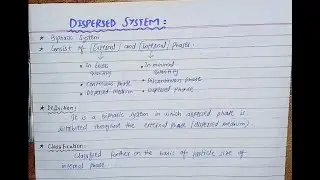 DISPERSED SYSTEM:
* Biphasic System
* Consist of [External] and [Internal] Phases.
• In Excess Quantity • In minimal Quantity
• Continuous phase • Discontinuous phase
• Dispersed Medium • Dispersed phase
* Definition:
It is a Biphasic System in which dispersed phase is
distributed throughout the external phase (dispersed medium).
* Classification:
Classified further on the basis of particle size of
internal phase